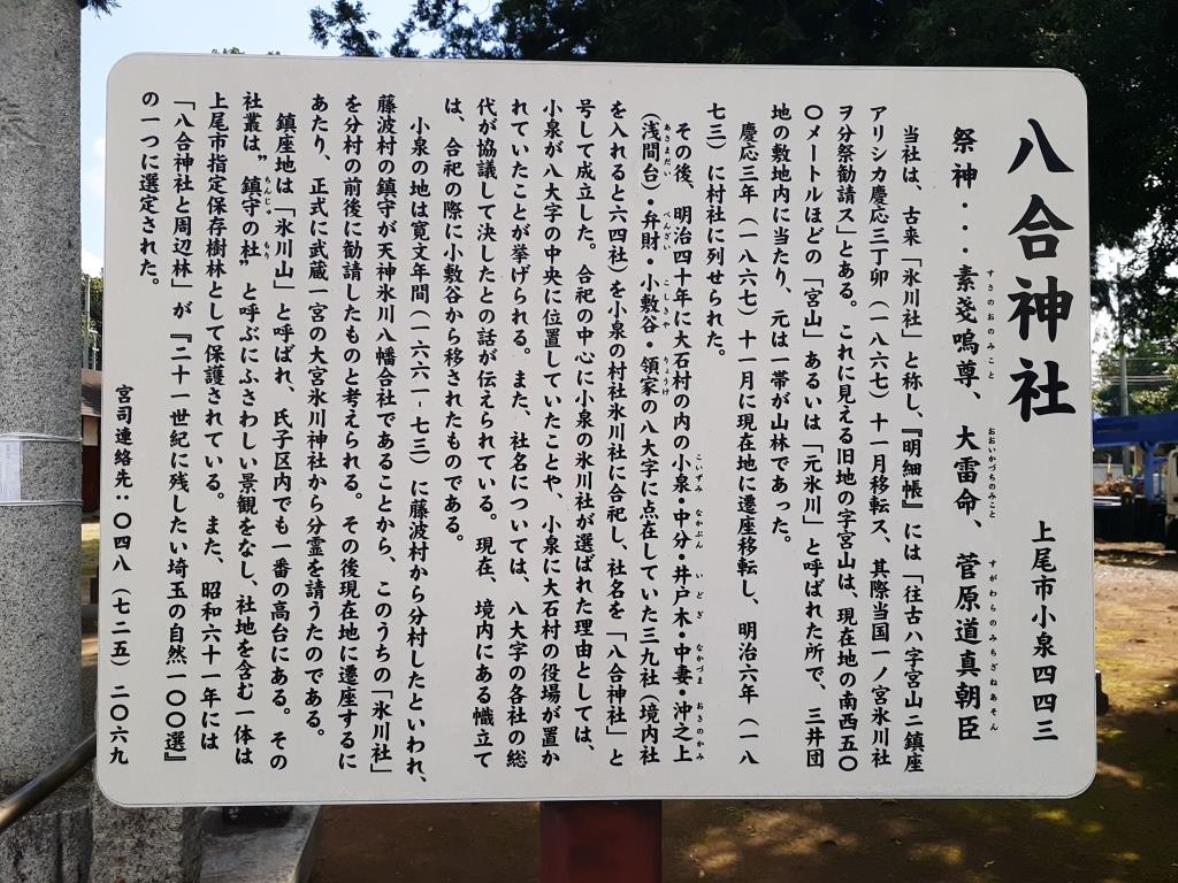 八合神社
上尾市小泉四四三
祭神・・・素戔嗚尊、大雷命、菅原道真朝臣
すさのおのみこと　おおいかづちのみこと　すがわらのみちざねあそん
当社は、古来「氷川社」と称し、『明細帳』には「往古ハ字宮山ニ鎮座
アリシカ慶応三丁卯（一八六七）十一月移転ス、其際当国一ノ宮氷川社
ヲ分祭勧請ス」とある。これに見える旧地の字宮山は、現在地の南西五〇
〇メートルほどの「宮山」あるいは「元氷川」と呼ばれた所で、三井団
地の敷地内に当たり、元は一帯が山林であった。
慶応三年（一八六七）十一月に現在地に遷座移転し、明治六年（一八
七三）に村社に列せられた。
その後、明治四十年に大石村の内の小泉・中分・井戸木・中妻・沖之上
こいずみ　なかぶん　いどぎ　なかづま　おきのかみ
（浅間台）・弁財・小敷谷・領家の八大字に点在していた三九社（境内社
あさまだい　べんざい　こしきや　りょうけ
を入れると六四社）を小泉の村社氷川社に合祀し、社名を「八合神社」と
号して成立した。合祀の中心に小泉の氷川社が選ばれた理由としては、
小泉が八大字の中央に位置していたことや、小泉に大石村の役場が置か
れていたことが挙げられる。また、社名については、八大字の各社の総
代が協議して決したとの話が伝えられている。現在、境内にある幟立て
は、合祀の際に小敷谷から移されたものである。
小泉の地は寛文年間（一六六一-七三）に藤波村から分村したといわれ、
藤波村の鎮守が天神氷川八幡合社であることから、このうちの「氷川社」
を分村の前後に勧請したものと考えられる。その後現在地に遷座するに
あたり、正式に武蔵一宮の大宮氷川神社から分霊を請うたのである。
鎮座地は「氷川山」と呼ばれ、氏子区内でも一番の高台にある。その
社叢は〝鎮守の杜〟と呼ぶにふさわしい景観をなし、社地を含む一体は
ちんじゅ　もり
上尾市指定保存樹林として保護されている。また、昭和六十一年には
「八合神社と周辺林」が『二十一世紀に残したい埼玉の自然一〇〇選』
の一つに選定された。
宮司連絡先：〇四八（七二五）二〇六九